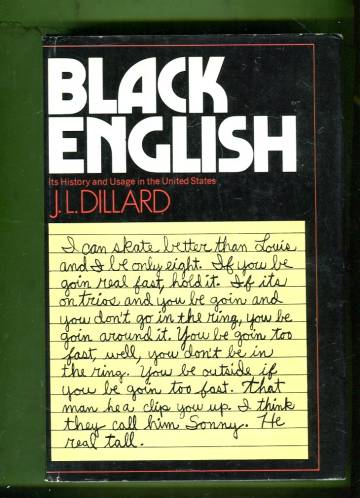 BLACK
ENGLISH
Its History and Usage in the United States
J.L. DILLARD
I can skate better than Louis
and I be only eight. If you be
goin real fast, hold it. If its
on trios and you be goin and
you don't go in the ring, you be
goin around it. You be goin too
fast, well, you don't be in
the ring. You be outside if
you be goin too fast. That
man he a clip you up. I think
they call him Sonny. He
real tall.